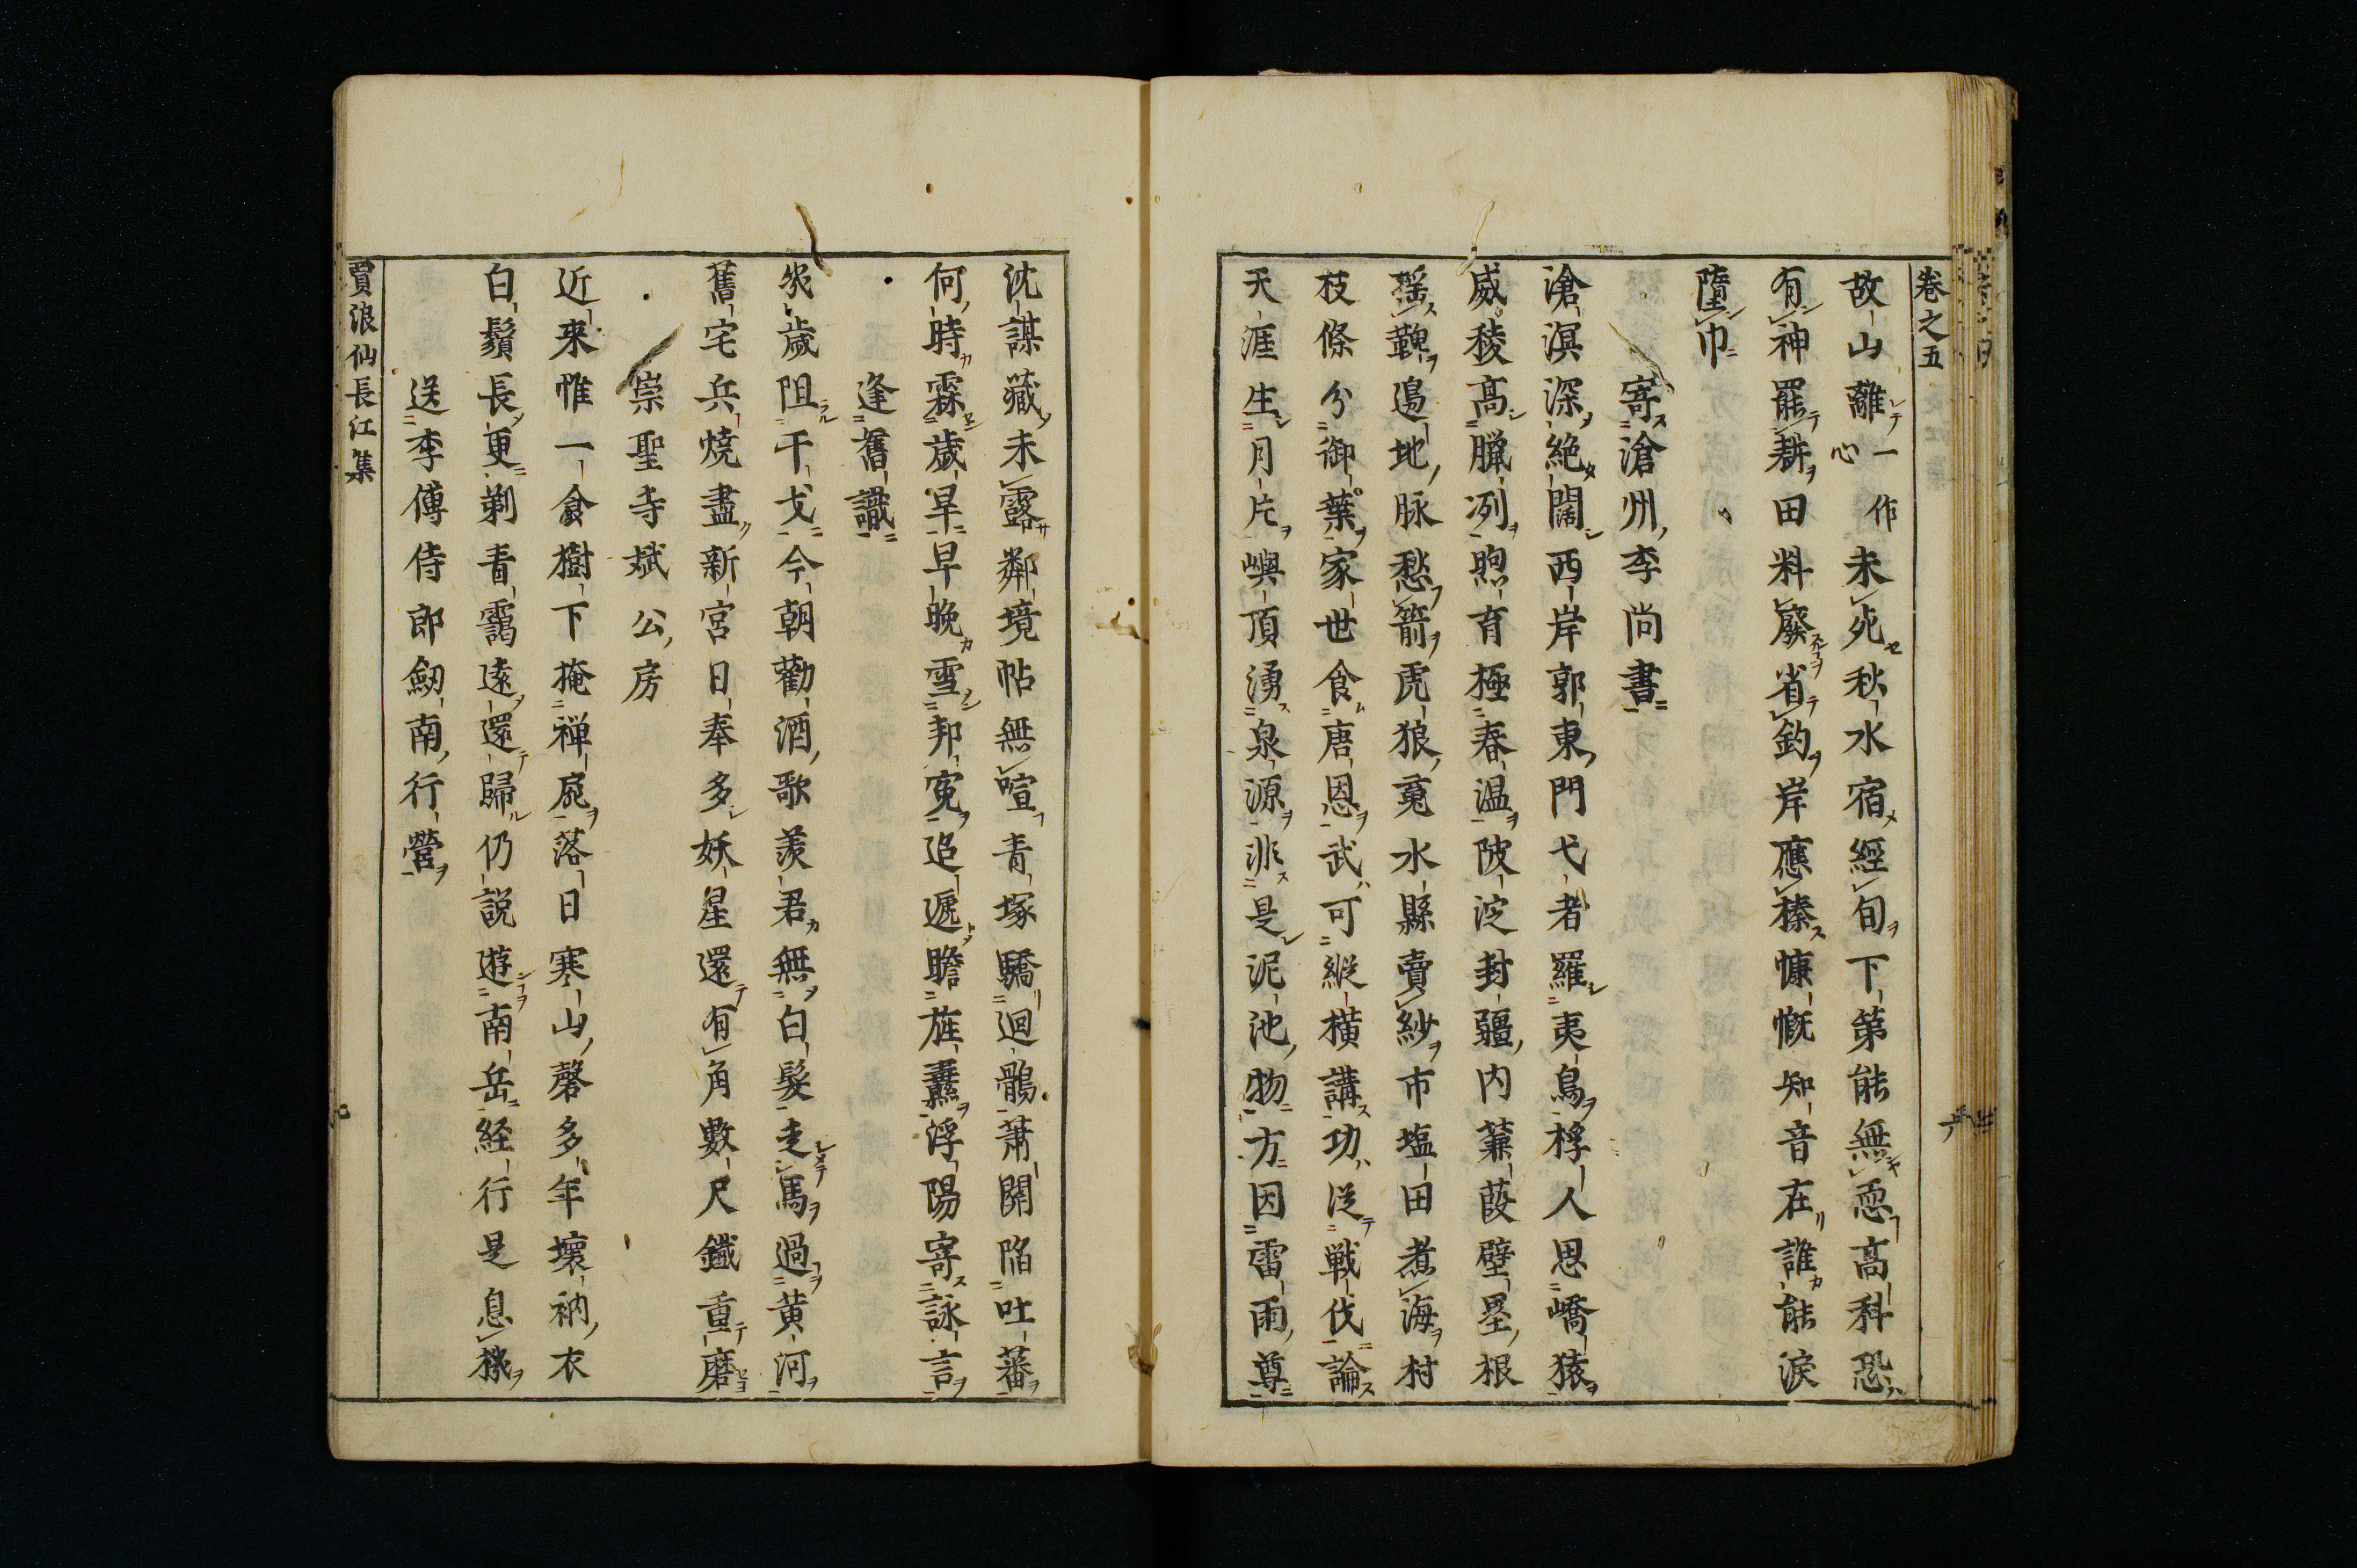 卷之五
故山離一作心未死秋水宿經旬下第能無恧高科恐
有神罷耕田料廢省釣岸應榛慷慨知音在誰能淚
墮巾
寄滄州李尚書
滄溟深絶闊西岸郭東門弋者羅夷鳥桴人思嶠猿
威稜高臘冽煦育極春温陂淀封疆内蒹葭壁壘根
摇鞞邉地脉愁箭虎狼䰟水縣賣紗市塩田煮海村
枝條分御葉家世食唐恩武可縱横講功從戦伐論
天涯生月片嶼頂湧泉源非是泥池物方因雷雨尊
沈謀藏未露鄰境帖無喧青塚驕迴鶻蕭關陷吐蕃
何時霖歳旱早晩雪邦寃追遞瞻旌纛浮陽寄詠言
逢舊識
幾歲阻干戈今朝勸酒歌羨君無白髮走馬過黄河
舊宅兵燒盡新宮日奉多妖星還有角數尺鐵重磨
崇聖寺斌公房
近来惟一食樹下掩禅扉落日寒山磬多年壞衲衣
白鬚長更剃青靄遠還歸仍説遊南岳経行是息機
送李傅侍郎劒南行營
賈浪仙長江集